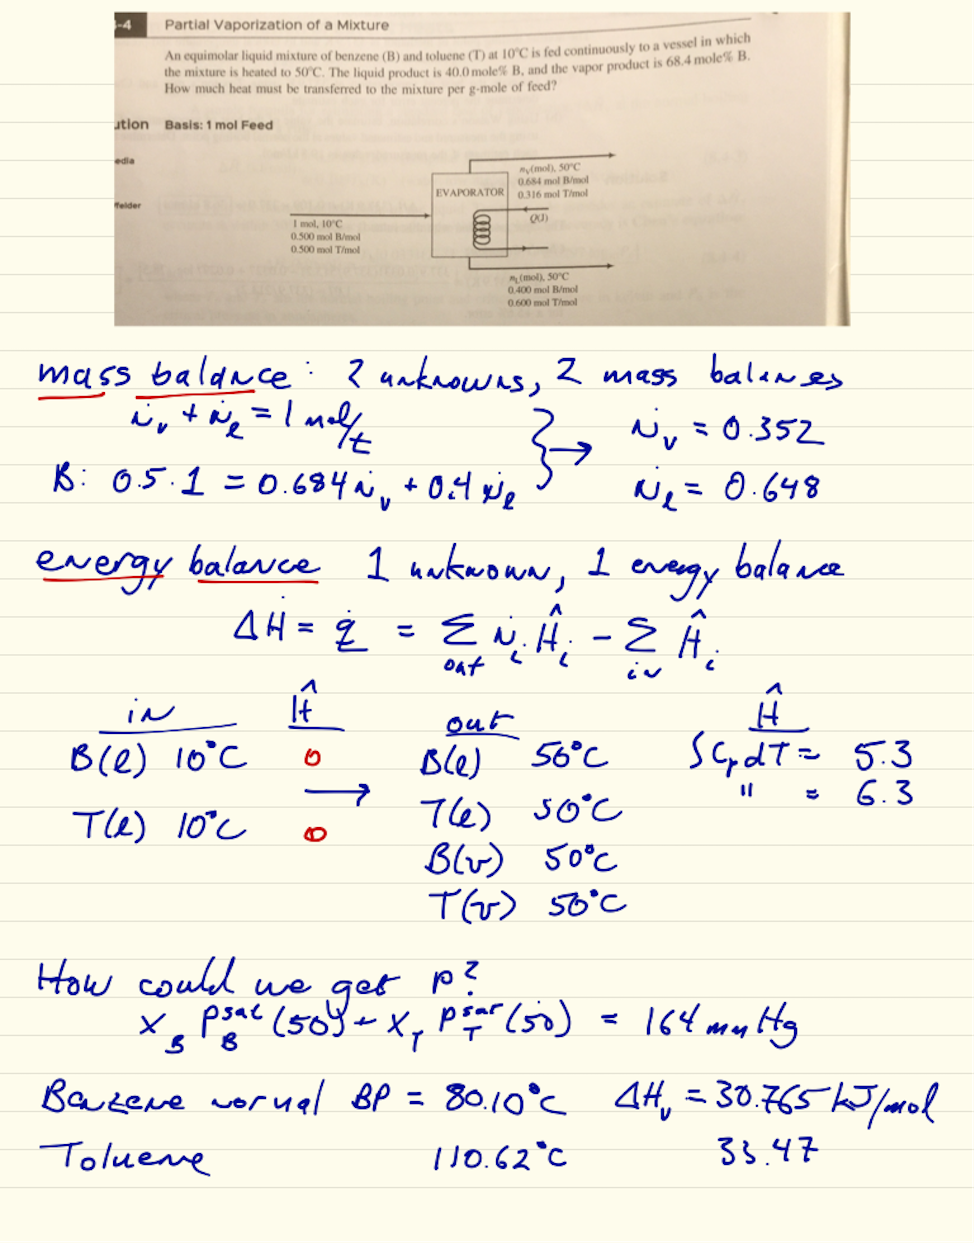 -4 Partial Vaporization of a Mixture
An equimolar liquid mixture of benzene (B) and toluene (T) at 10°C is fed continuously to a vessel in which
the mixture is heated to 50°C. The liquid product is 40.0 mole% B, and the vapor product is 68.4 mole% B.
How much heat must be transferred to the mixture per g-mole of feed?
ution Basis: 1 mol Feed
edia
felder
EVAPORATOR
nv(mol), 50°C
0.684 mol B/mol
0.316 mol T/mol
Q(J)
1 mol, 10°C
0.500 mol B/mol
0.500 mol T/mol
nL(mol), 50°C
0.400 mol B/mol
0.600 mol T/mol
mass balance: 2 unknowns, 2 mass balances
ṅv + ṅl = 1 mol/t
ṅv = 0.352
B: 0.5·1 = 0.684 ṅv + 0.4 ṅl
ṅl = 0.648
energy balance 1 unknown, 1 energy balance
ΔḢ = q̇ = Σ out ṅi Ĥi − Σ in Ĥi
in Ĥ out Ĥ
B(l) 10°C 0 → B(l) 50°C ∫CpdT = 5.3
T(l) 10°C 0 T(l) 50°C " = 6.3
B(v) 50°C
T(v) 50°C
How could we get p?
xB pBsat (50) + xT pTsat (50) = 164 mmHg
Benzene normal BP = 80.10°C ΔHv = 30.765 kJ/mol
Toluene 110.62°C 33.47